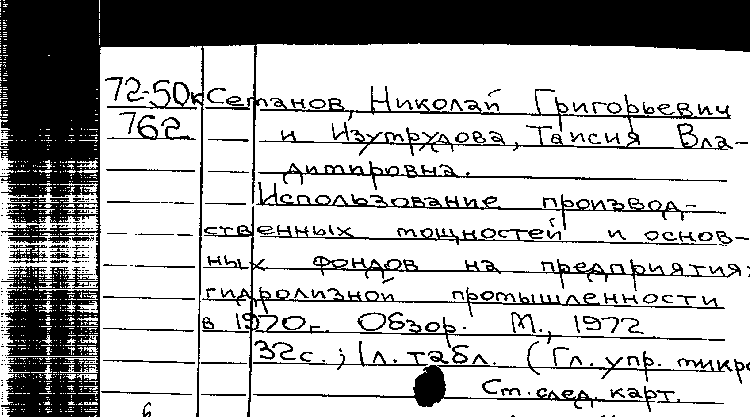 72-50к Сетанов, Николай Григорьевич
762 и Изутрудова, Таисия Вла-
димировна.
Использование производ-
ственных мощностей и основ-
ных фондов на предприятиях
гидролизной промышленности
в 1970г. Обзор. М., 1972
32с.; 1л. табл. (Гл. упр. микро
См. след. карт.